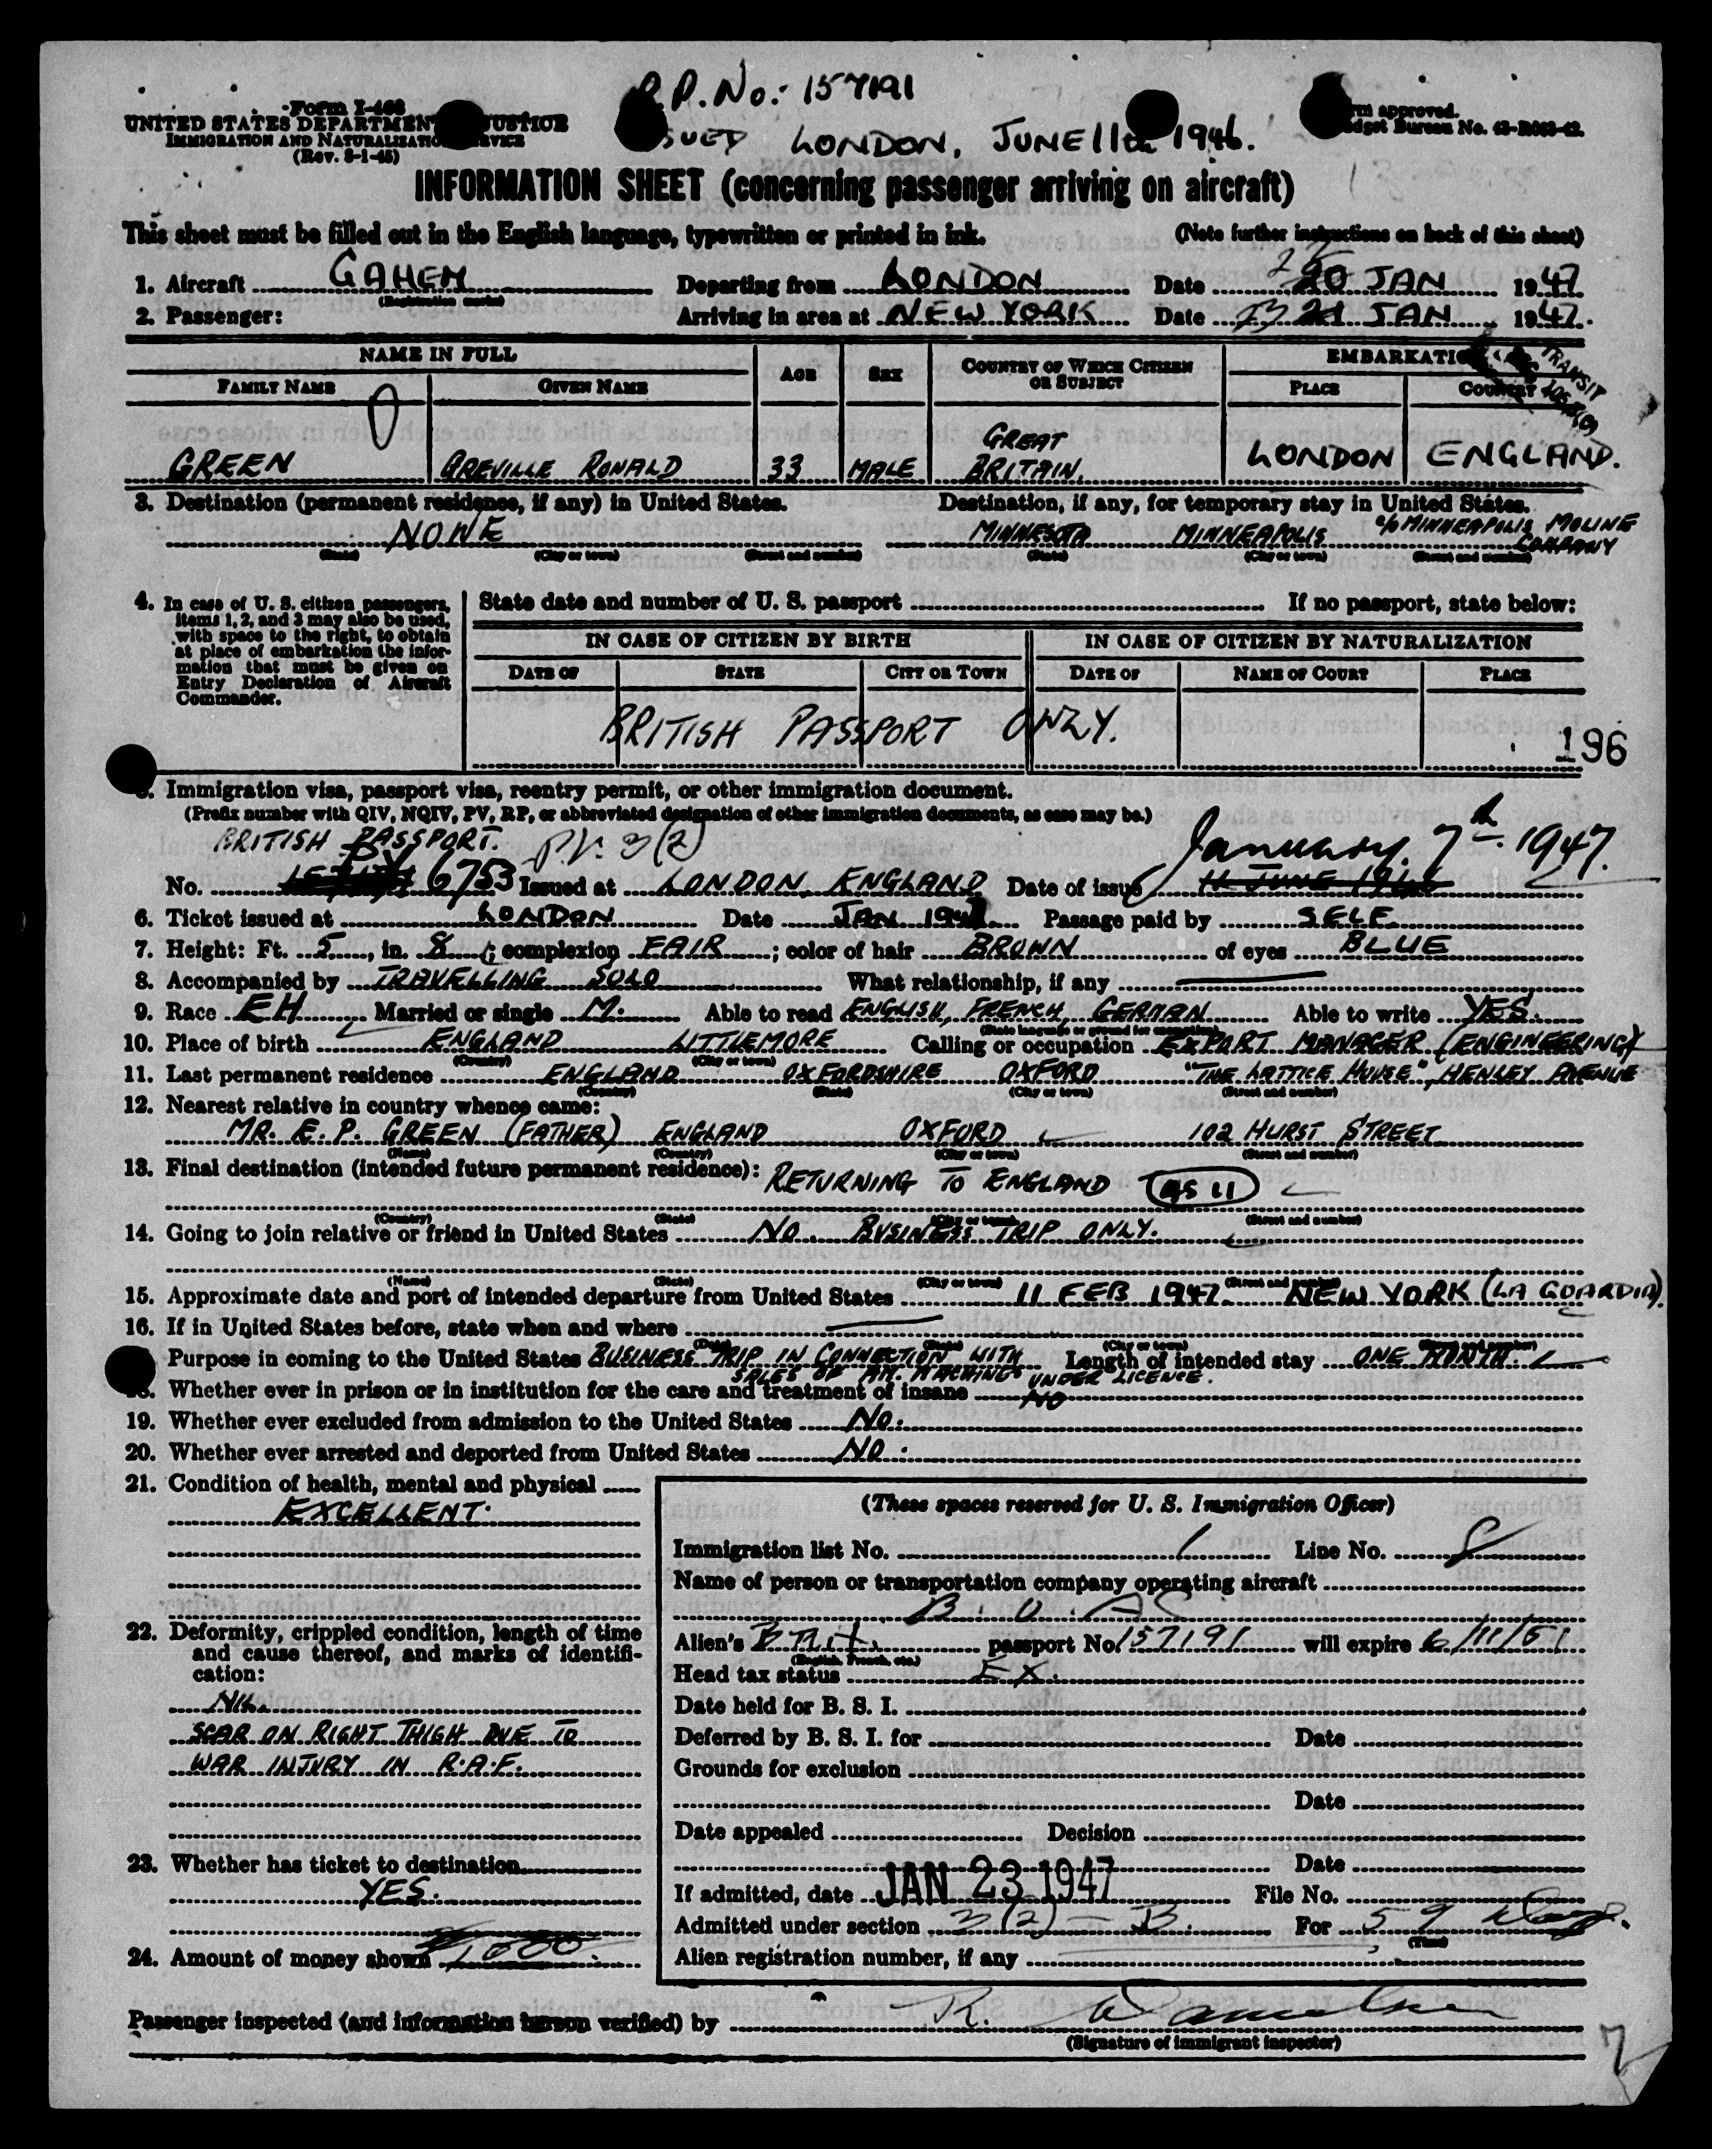 P.P. No:- 157191
Form I-466
UNITED STATES DEPARTMENT JUSTICE
IMMIGRATION AND NATURALIZATION SERVICE
(Rev. 8-1-45)
LONDON, JUNE 11th 1946.
approved.
Budget Bureau No. 43-R083-42.
INFORMATION SHEET (concerning passenger arriving on aircraft)
This sheet must be filled out in the English language, typewritten or printed in ink. (Note further instructions on back of this sheet)
1. Aircraft GAHEM Departing from LONDON Date 20 JAN 1947
(Registration marks)
2. Passenger: Arriving in area at NEW YORK Date 23 21 JAN 1947.
NAME IN FULL AGE SEX COUNTRY OF WHICH CITIZEN OR SUBJECT EMBARKATION
FAMILY NAME GIVEN NAME PLACE COUNTRY
TRANSIT
GREEN GREVILLE RONALD 33 MALE GREAT BRITAIN. LONDON ENGLAND.
3. Destination (permanent residence, if any) in United States. Destination, if any, for temporary stay in United States.
NONE MINNESOTA MINNEAPOLIS c/o MINNEAPOLIS MOLINE COMPANY
(State) (City or town) (Street and number) (State) (City or town) (Street and number)
4. In case of U. S. citizen passengers, items 1, 2, and 3 may also be used, with space to the right, to obtain at place of embarkation the information that must be given on Entry Declaration of Aircraft Commander.
State date and number of U. S. passport If no passport, state below:
IN CASE OF CITIZEN BY BIRTH IN CASE OF CITIZEN BY NATURALIZATION
DATE OF STATE CITY OR TOWN DATE OF NAME OF COURT PLACE
BRITISH PASSPORT ONLY.
196
5. Immigration visa, passport visa, reentry permit, or other immigration document.
(Prefix number with QIV, NQIV, PV, RP, or abbreviated designation of other immigration documents, as case may be.)
BRITISH PASSPORT. P.V. 3(2) January. 7th 1947.
No. PV 6753 Issued at LONDON, ENGLAND Date of issue 11 JUNE 1946
6. Ticket issued at LONDON Date JAN 1947 Passage paid by SELF.
7. Height: Ft. 5, in. 8; complexion FAIR; color of hair BROWN of eyes BLUE
8. Accompanied by TRAVELLING SOLO What relationship, if any
9. Race EH Married or single M. Able to read ENGLISH, FRENCH, GERMAN Able to write YES.
(State language or ground for exemption)
10. Place of birth ENGLAND LITTLEMORE Calling or occupation EXPORT MANAGER (ENGINEERING)
(Country) (City or town)
11. Last permanent residence ENGLAND OXFORDSHIRE OXFORD "THE LATTICE HOUSE", HENLEY AVENUE
(Country) (State) (City or town) (Street and number)
12. Nearest relative in country whence came:
MR. E. P. GREEN (FATHER) ENGLAND OXFORD 102 HURST STREET
(Name) (Country) (City or town) (Street and number)
13. Final destination (intended future permanent residence): RETURNING TO ENGLAND as 11
(Country) (State) (City or town) (Street and number)
14. Going to join relative or friend in United States NO. BUSINESS TRIP ONLY.
(Name) (State) (City or town) (Street and number)
15. Approximate date and port of intended departure from United States 11 FEB 1947. NEW YORK (LA GUARDIA).
16. If in United States before, state when and where
(Date) (State) (City or town) (Street and number)
Purpose in coming to the United States BUSINESS TRIP IN CONNECTION WITH Length of intended stay ONE MONTH.
SALES OF MM. MACHINES UNDER LICENCE.
18. Whether ever in prison or in institution for the care and treatment of insane NO
19. Whether ever excluded from admission to the United States NO.
20. Whether ever arrested and deported from United States NO.
21. Condition of health, mental and physical
EXCELLENT.
22. Deformity, crippled condition, length of time and cause thereof, and marks of identification:
NIL.
SCAR ON RIGHT THIGH DUE TO
WAR INJURY IN R.A.F.
23. Whether has ticket to destination
YES.
24. Amount of money shown $1000.
(These spaces reserved for U. S. Immigration Officer)
Immigration list No. 1 Line No. 8
Name of person or transportation company operating aircraft
B. O. A C
Alien's Brit. passport No. 157191 will expire 6/11/51
(English, French, etc.)
Head tax status Ex.
Date held for B. S. I.
Deferred by B. S. I. for Date
Grounds for exclusion
Date
Date appealed Decision
Date
If admitted, date JAN 23 1947 File No.
Admitted under section 3 (2) - B. For 59 days.
(Time)
Alien registration number, if any
Passenger inspected (and information hereon verified) by R.
(Signature of immigrant inspector)
7